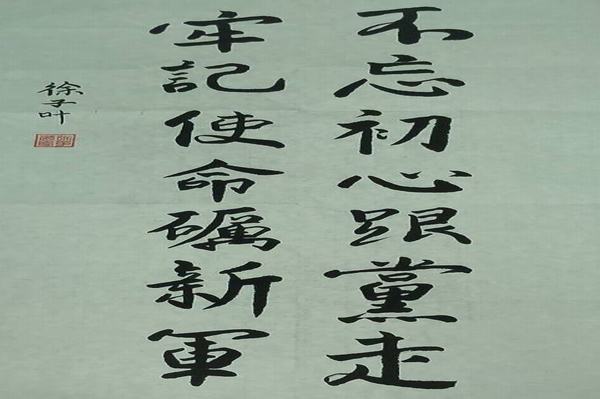 不忘初心跟黨走
牢記使命礪新軍
徐子叶